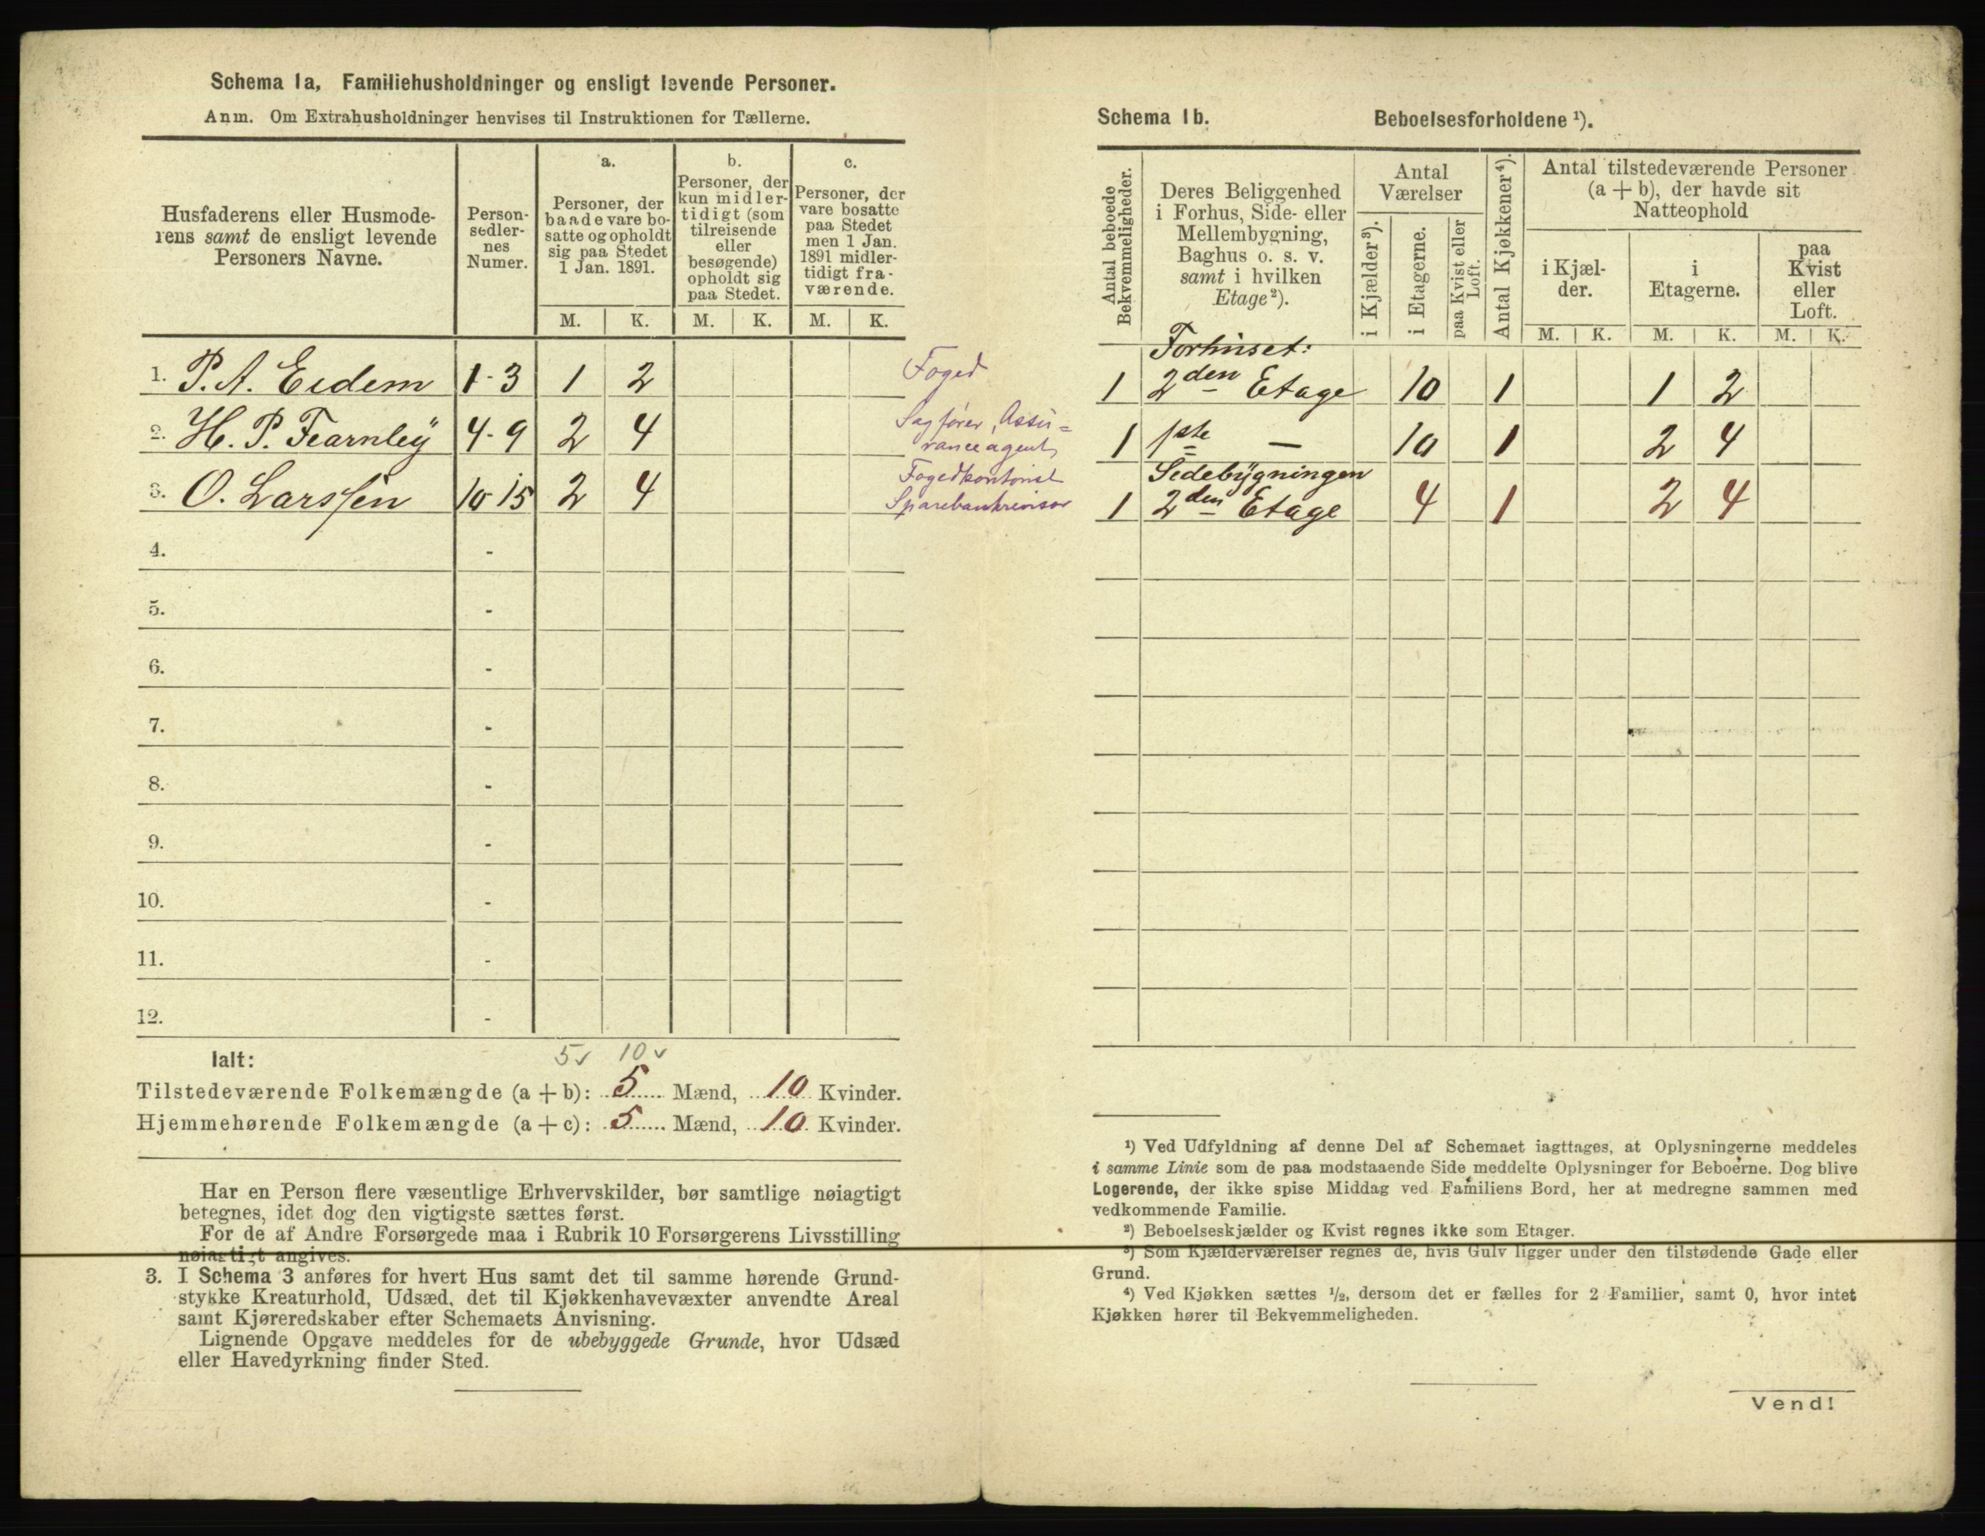 Schema 1a, Familiehusholdninger og ensligt levende Personer.
Anm. Om Extrahusholdninger henvises til Instruktionen for Tællerne.
Husfaderens eller Husmode-
rens samt de ensligt levende
Personers Navne.
Person-
sedler-
nes
Numer.
a.
Personer, der
baade vare bo-
satte og opholdt
sig paa Stedet
1 Jan. 1891.
b.
Personer, der
kun midler-
tidigt (som
tilreisende
eller
besøgende)
opholdt sig
paa Stedet.
c.
Personer, der
vare bosatte
paa Stedet
men 1 Jan.
1891 midler-
tidigt fra-
værende.
M. K. M. K. M. K.
1. P. A. Eidem 1-3 1 2 Foged
2. H. P. Fearnley 4-9 2 4 Sagfører, Assu=
ranceagent
3. O. Larssen 10-15 2 4 Fogedkontorist
Sparebankrevisor
4. -
5. -
6. -
7. -
8. -
9. -
10. -
11. -
12. -
Ialt: 5✓ 10✓
Tilstedeværende Folkemængde (a + b): 5 Mænd, 10 Kvinder.
Hjemmehørende Folkemængde (a + c): 5 Mænd, 10 Kvinder.
Har en Person flere væsentlige Erhvervskilder, bør samtlige nøiagtigt
betegnes, idet dog den vigtigste sættes først.
For de af Andre Forsørgede maa i Rubrik 10 Forsørgerens Livsstilling
nøiagtigt angives.
3. I Schema 3 anføres for hvert Hus samt det til samme hørende Grund-
stykke Kreaturhold, Udsæd, det til Kjøkkenhavevæxter anvendte Areal
samt Kjøreredskaber efter Schemaets Anvisning.
Lignende Opgave meddeles for de ubebyggede Grunde, hvor Udsæd
eller Havedyrkning finder Sted.
Schema 1b. Beboelsesforholdene ¹).
Antal beboede
Bekvemmeligheder.
Deres Beliggenhed
i Forhus, Side- eller
Mellembygning,
Baghus o. s. v.
samt i hvilken
Etage ²).
Antal
Værelser
i Kjælder ³).
i Etagerne.
paa Kvist eller
Loft.
Antal Kjøkkener ⁴).
Antal tilstedeværende Personer
(a + b), der havde sit
Natteophold
i Kjæl-
der.
i
Etagerne.
paa
Kvist
eller
Loft.
M. K. M. K. M. K.
Forhuset:
1 2den Etage 10 1 1 2
1 1ste — 10 1 2 4
Sidebygningen
1 2den Etage 4 1 2 4
¹) Ved Udfyldning af denne Del af Schemaet iagttages, at Oplysningerne meddeles
i samme Linie som de paa modstaaende Side meddelte Oplysninger for Beboerne. Dog blive
Logerende, der ikke spise Middag ved Familiens Bord, her at medregne sammen med
vedkommende Familie.
²) Beboelseskjælder og Kvist regnes ikke som Etager.
³) Som Kjælderværelser regnes de, hvis Gulv ligger under den tilstødende Gade eller
Grund.
⁴) Ved Kjøkken sættes ½, dersom det er fælles for 2 Familier, samt 0, hvor intet
Kjøkken hører til Bekvemmeligheden.
Vend!